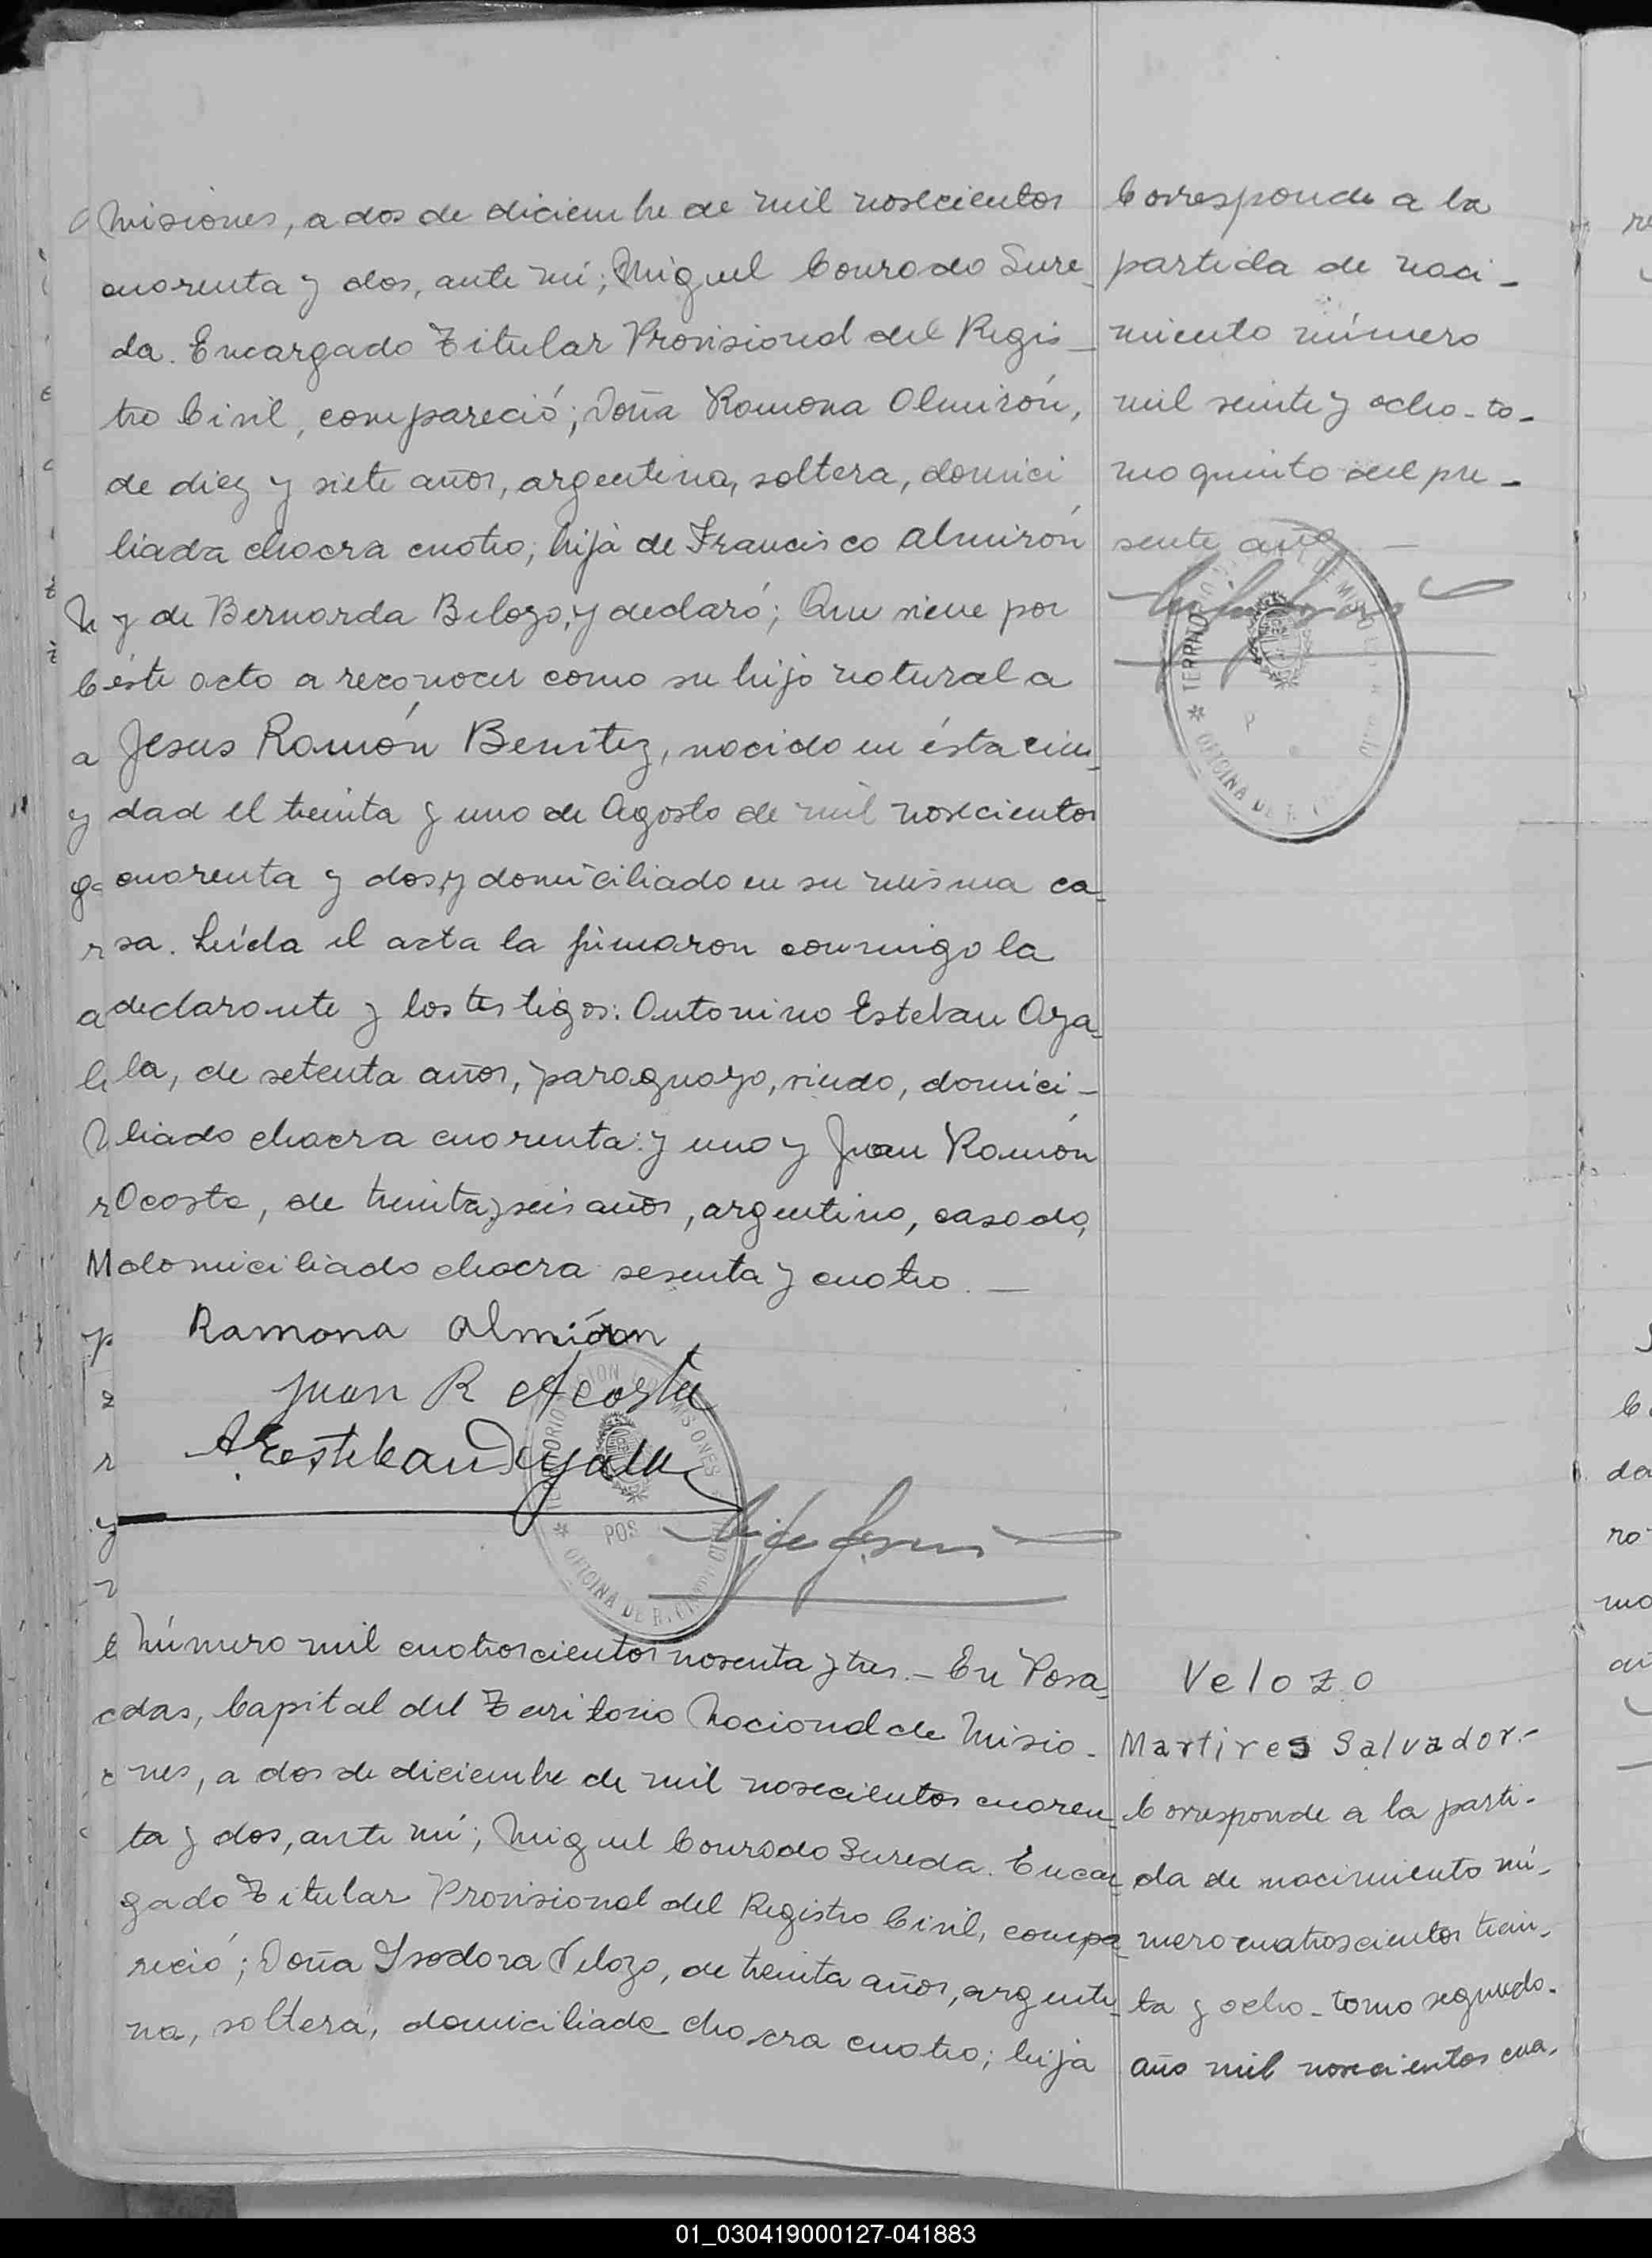 Misiones, a dos de diciembre de mil novecientos
cuarenta y dos, ante mí; Miguel Conrado Sure_
da. Encargado Titular Provisional del Regis_
tro Civil, compareció; Doña Ramona Almirón,
de diez y siete años, argentina, soltera, domici
liada chacra cuatro, hija de Francisco Almirón
y de Bernarda Belozo, y declaró; Que viene por
éste acto a reconocer como su hijo natural a
Jesus Ramón Benitez, nacido en ésta ciu_
dad el treinta y uno de Agosto de mil novecientos
cuarenta y dos, y domiciliado en su misma ca_
sa. Leída el acta la firmaron conmigo la
declarante y los testigos: Antonino Esteban Aya_
la, de setenta años, paraguayo, viudo, domici_
liado chacra cuarenta y uno y Juan Ramón
Acosta, de treinta y seis años, argentino, casado,
domiciliado chacra sesenta y cuatro. _
Ramona Almirón
Juan R Acosta
A Esteban Ayala
TERRITORIO NACIONAL DE MISIONES
POS
OFICINA DE R. CIVIL
Corresponde a la
partida de naci_
miento número
mil veinte y ocho_to_
mo quinto del pre_
sente año _
TERRITORIO DE MISIONES
OFICINA DE R.
Número mil cuatroscientos noventa y tres._ En Posa_
das, Capital del Territorio Nacional de Misio_
nes, a dos de diciembre de mil novecientos cuaren_
ta y dos, ante mí; Miguel Conrado Sureda. Encar_
gado Titular Provisional del Registro Civil, compa_
reció; Doña Isodora Velozo, de treinta años, argenti_
na, soltera, domiciliada chacra cuatro; hija
Velozo
Martires Salvador._
Corresponde a la parti_
da de nacimiento nú_
mero cuatroscientos trein_
ta y ocho_tomo segundo.
año mil novecientos cua_
01_030419000127-041883